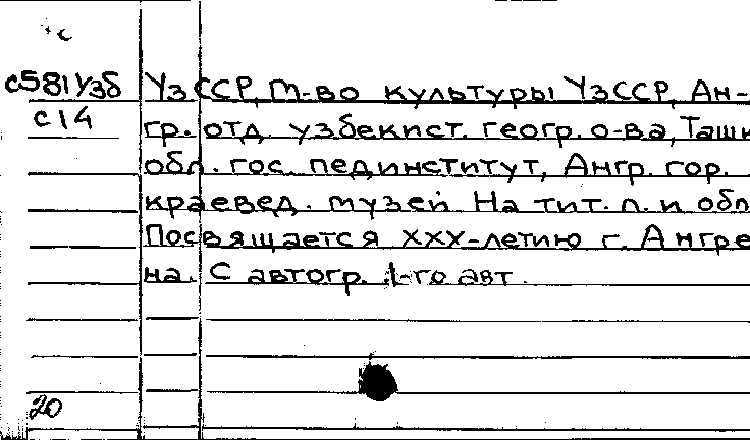 с581Узб УзССР, М-во культуры УзССР, Ан-
с14 гр. отд. узбекист. геогр. о-ва, Ташк
обл. гос. пединститут, Ангр. гор.
краевед. музей На тит. л. и обл
Посвящается XXX-летию г. Ангре
на. С автогр. 1-го авт.
20